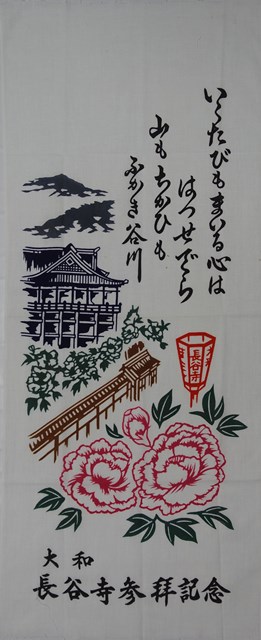 いくたびもまいる心は
はつせでら
山もちかひも
ふかき谷川
長谷寺
大和
長谷寺参拝記念